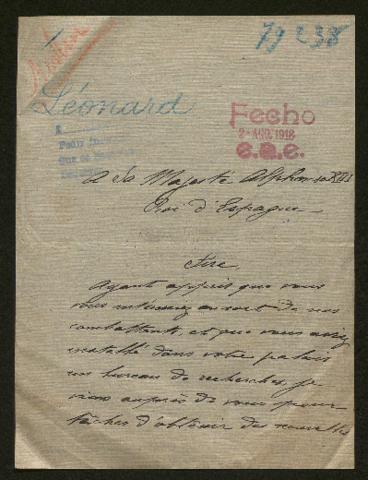 79238
Léonard
Fecho
2-AGO. 1918
e.a.e.
A
Felix
Rue de
A Sa Majesté Alphonse XIII
Roi d'Espagne
Sire
Ayant appris que vous
vous intéressez au sort de nos
combattants et que vous avez
installé dans votre palais
un bureau de recherches, je
viens auprès de vous pour
tâcher d'obtenir des nouvelles